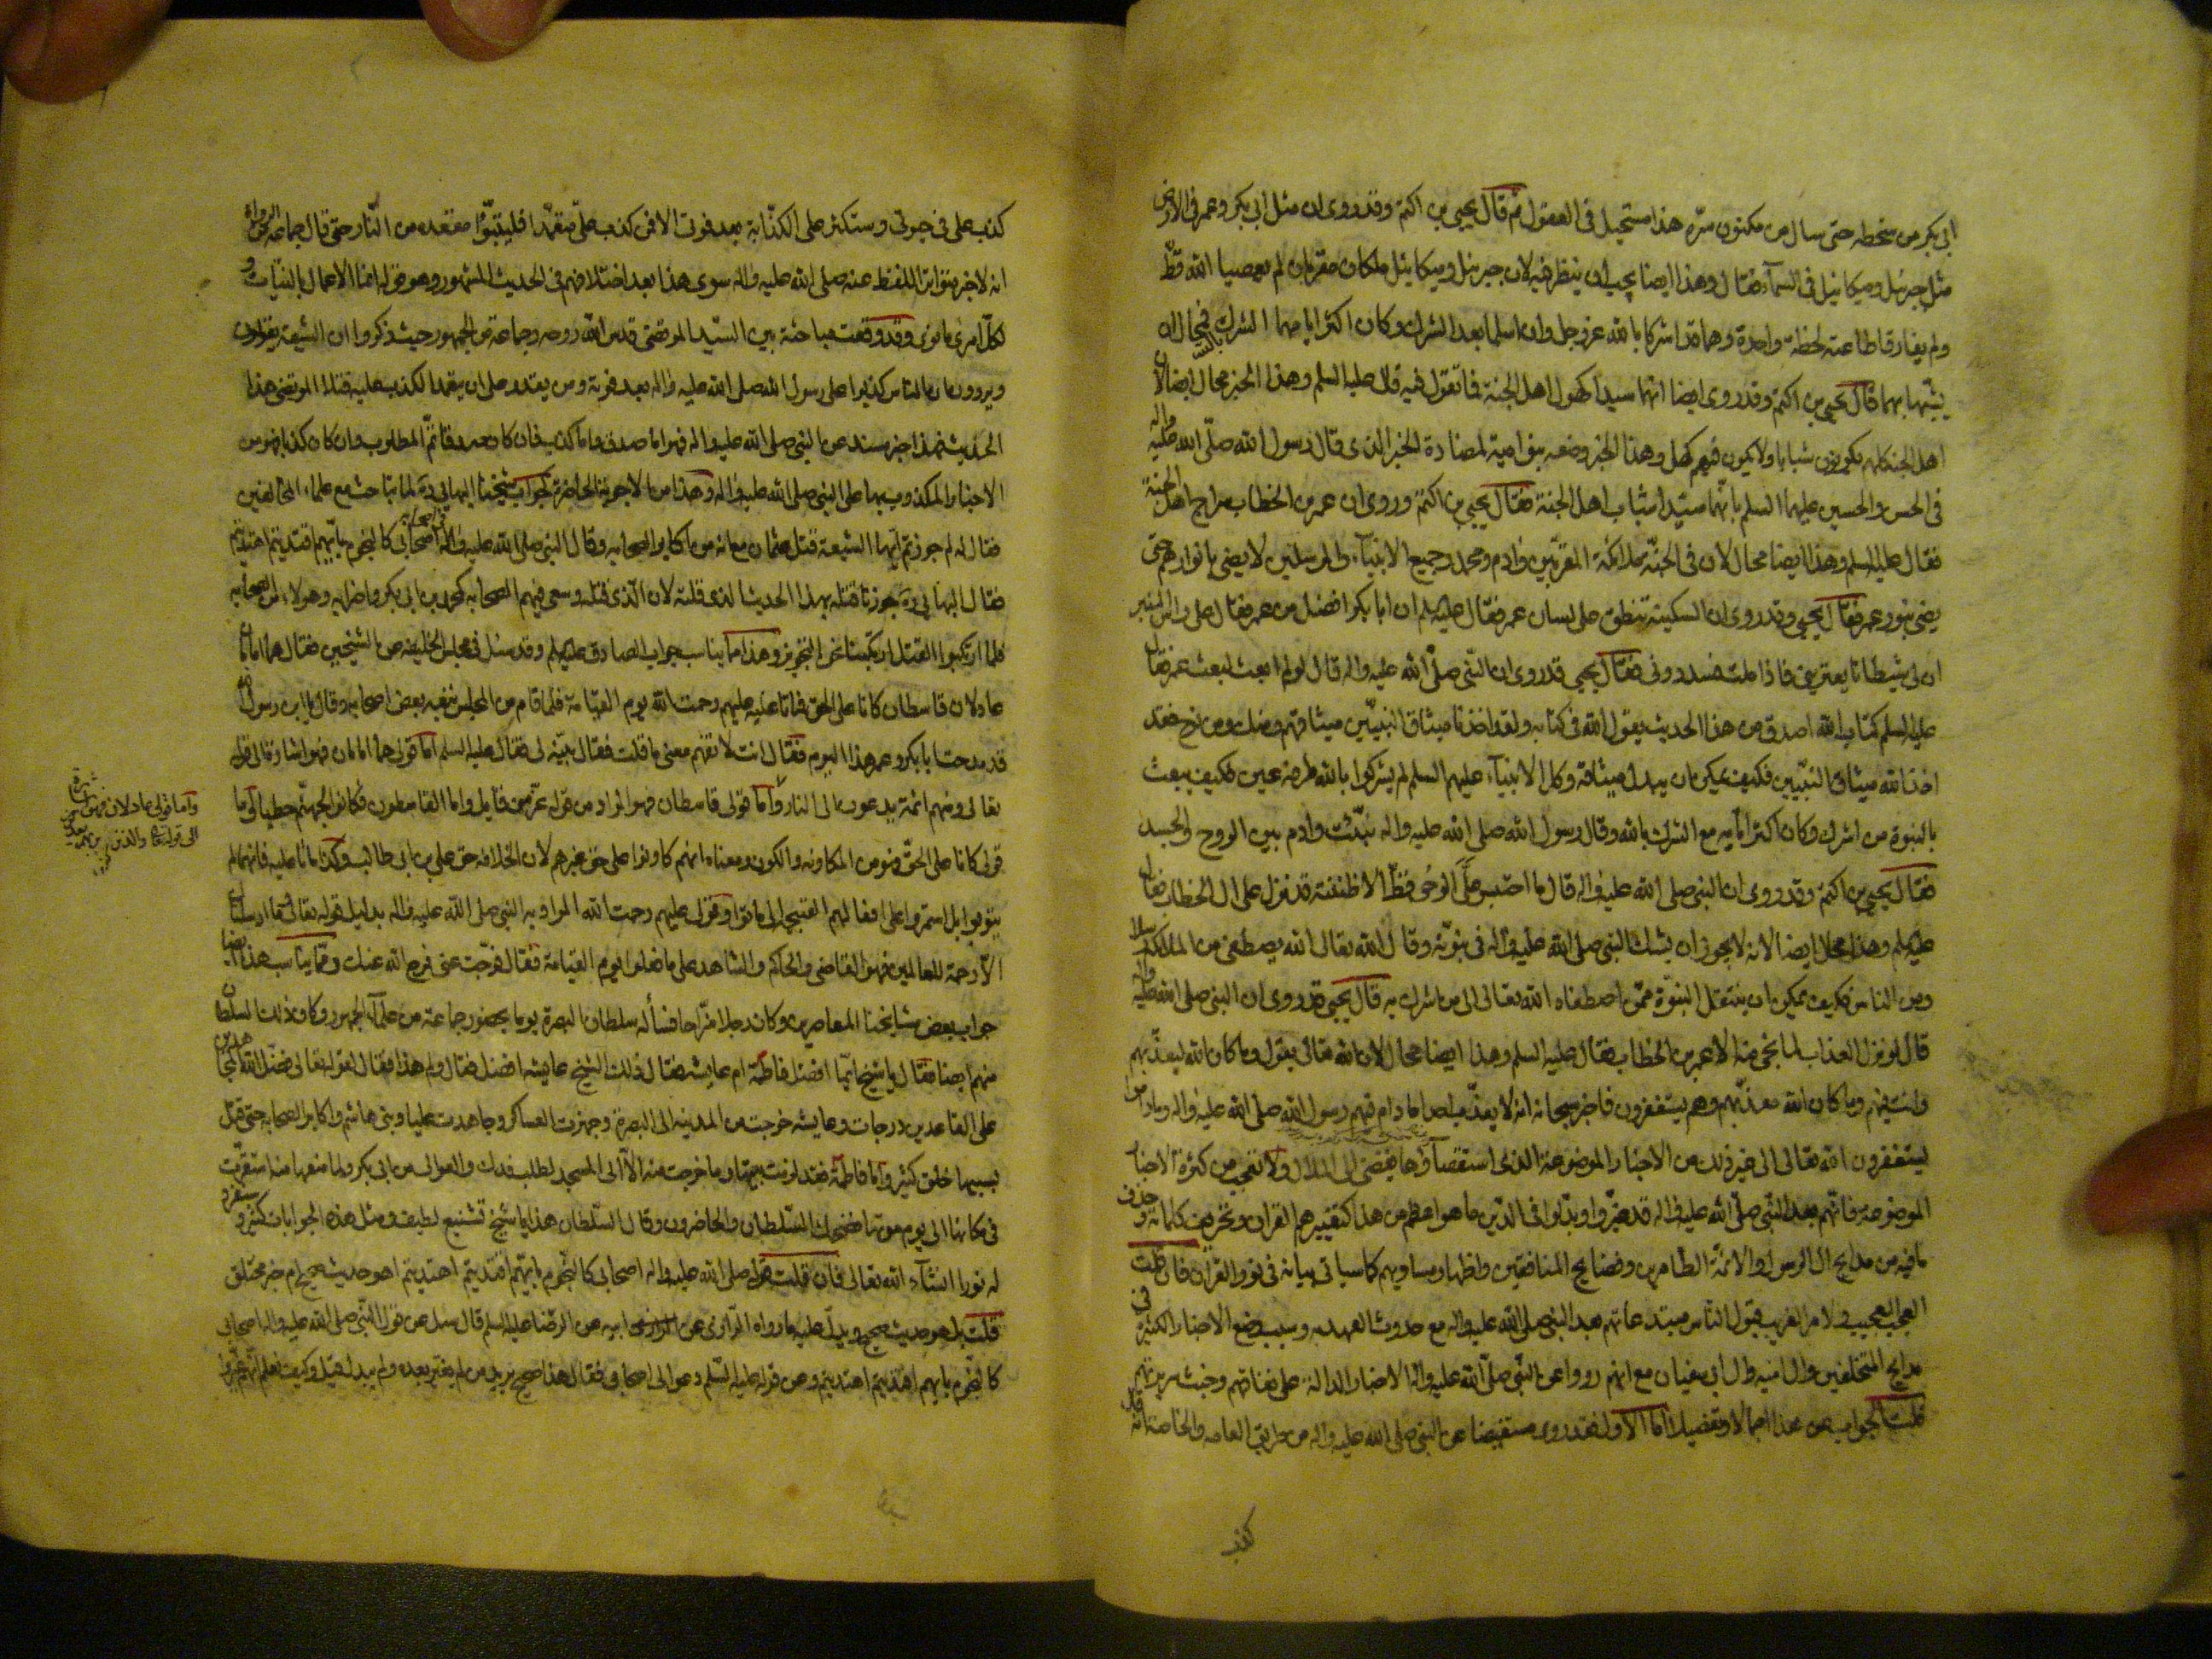 ابى بكر من سخطه حتى سال من مكنون سرّه هذا مستحيل فى العقول ثم قال يحيى بن اكثم وقد روى ان مثل ابى بكر وعمر فى الارض
مثل جبرئيل وميكائيل فى السمآء فقال وهذا ايضا يجب ان ينظر فيه لان جبرئيل وميكائيل ملكان مقربان لم يعصيا الله قطّ
ولم يفارقا طاعته لحظة واحدة وهما قد اشركا بالله عزوجل وان اسلما بعد الشرك وكان اكثر ايامهما الشرك بالله فمحال ان
يشبّهها بهما قال يحيى بن اكثم وقد روى ايضا انهما سيدا كهول اهل الجنة فما تقول فيه قال عليه السلم وهذا الخبر محال ايضا لان
اهل الجنة كلهم يكونون شبابا ولا يكون فيهم كهل وهذا الخبر وضعه بنو امية لمضادة الخبر الذى قال رسول الله صلّى الله عليه واله
فى الحسن والحسين عليهما السلم بانهما سيدا شباب اهل الجنة فقال يحيى بن اكثم وروى ان عمر بن الخطاب سراج اهل الجنة
فقال عليه السلم وهذا ايضا محال لان فى الجنّة ملائكة المقربين وادم ومحمد وجميع الانبيآء والمرسلين لا يضى بانوارهم حتى
يضى بنور عمر فقال يحيى وقد روى ان السكينة تنطق على لسان عمر فقال عليه السلم ان ابا بكر افضل من عمر فقال على راس المنبر
ان لى شيطانا يعترينى فاذا ملت فسددونى فقال يحيى قد روى ان النّبى صلّى الله عليه واله قال لو لم ابعث لبعث عمر فقال
عليه السلم كتاب الله اصدق من هذا الحديث يقول الله فى كتابه ولقد اخذنا ميثاق النبيّين ميثاقهم ومنك ومن نوح فقد
اخذ الله ميثاق النبيّين فكيف يمكن ان يبدل ميثاقه وكل الانبيآء عليهم السلم لم يشركوا بالله طرفة عين فكيف يبعث
بالنبوة من اشرك وكان اكثر ايّامه مع الشرك بالله وقال رسول الله صلى الله عليه واله نبّئت وادم بين الروح والجسد
فقال يحيى بن اكثم وقد روى ان النبى صلى الله عليه واله قال ما احتبس عنّى الوحى قطّ الا ظننته قد نزل على ال الخطاب فقال
عليه السلم وهذا محال ايضا لانه لا يجوز ان يشك النبى صلى الله عليه واله فى نبوّته وقال الله تعالى الله يصطفى من الملائكة رسلا
ومن الناس فكيف يمكن ان ينتقل النبوّة ممّن اصطفاه الله تعالى الى من اشرك به قال يحيى قد روى ان النبى صلى الله عليه واله
قال لو نزل العذاب لما نجى منه الا عمر بن الخطاب فقال عليه السلم وهذا ايضا محال لان الله تعالى يقول وما كان الله ليعذّبهم
وانت فيهم وما كان الله معذبهم وهم يستغفرون فاخبر سبحانه انه لا يعذّب احدا ما دام فيهم رسول الله صلى الله عليه واله وما داموا
يستغفرون الله تعالى الى غير ذلك من الاخبار الموضوعة الذى استقصآؤها يفضى الى الملال ولا تعجب من كثرة الاخبار
الموضوعة فانّهم بعد النّبى صلّى الله عليه واله قد غيّروا وبدّلوا فى الدّين ما هو اعظم من هذا كتغييرهم القران وتحريف كلماته وحذف
ما فيه من مدايح ال الرسول والائمّة الطاهرين وفضايح المنافقين واظهار مساويهم كما سياتى بيانه فى نور القران فان قلت
العجب العجيب والامر الغريب قبول الناس مبتدعاتهم بعد النبى صلى الله عليه واله مع حدوث العهد به وسبب وضع الاخبار الكثيرة فى
مدايح المتخلفين وال اميه وال ابى سفيان مع انهم رووا عن النّبى صلّى الله عليه واله الاخبار الدالة على نفاقهم وخبث سريرتهم
قلت الجواب عن هذا اجمالا وتفصيلا اما الاول فقد روى مستفيضا عن النبى صلى الله عليه واله من طريق العامه والخاصة انه قال
كذب
كذب على فى حيوتى وستكثر على الكذّابة بعد فوتى الا فمن كذب علىّ متعمّدا فليتبوّأ مقعده من النّار حتى قال جماعة من العامّة
انه لا خبر متواتر اللفظ عنه صلى الله عليه واله سوى هذا بعد اختلافهم فى الحديث المشهور وهو قوله انما الاعمال بالنيات و
لكلّ امرئ ما نوى وقد وقعت مباحثة بين السيّد المرتضى قدس الله روحه وجماعة من الجمهور حيث ذكروا ان الشيعة يقولون
ويروون ان الناس كذبوا على رسول الله صلى الله عليه واله بعد فوته ومن يقدر على ان يتعمد الكذب عليه فقال المرتضى هذا
الحديث فهذا خبر مسند عن النبى صلى الله عليه واله فهو اما صدق واما كذب فان كان صدقا تمّ المطلوب وان كان كذبا فهو من
الاخبار المكذوب بها على النبى صلى الله عليه واله وهذا من الاجوبة الحاضرة كجواب شيخنا البهائى ره لما تباحث مع علماء المخالفين
فقال له لم جوزتم ايها الشيعة قتل عثمان مع انه من اكابر الصحابه وقال النبى صلى الله عليه واله فى اصحابه اصحابى كالنجوم بايّهم اقتديتم اهتديتم
فقال البهائى ره جوزنا قتله بهذا الحديث الذى قلته لان الذى قتله وسعى فيهم الصحابه كمحمد بن ابى بكر واضرابه وهولاء من الصحابه
فلما ارتكبوا القتل ارتكبنا نحن التجويز وهذا ما يناسب جواب الصادق عليه السلم وقد سئل فى مجلس الخليفه عن الشيخين فقال هما امامان
عادلان قاسطان كانا على الحق فماتا عليه عليهم رحمت الله يوم القيامة فلمّا قام من المجلس تبعه بعض اصحابه وقال يابن رسول الله
قد مدحت ابا بكر وعمر هذا اليوم فقال انت لا تفهم معنى ما قلت فقال بيّنه لى فقال عليه السلم اما قولى هما امامان فهو اشارة الى قوله
تعالى ومنهم ائمة يدعون الى النار واما قولى قاسطان فهو المراد من قوله عزّ من قايل واما القاسطون فكانوا لجهنّم حطبا واما
وامّا قولى عادلان فهو اشارة
الى قوله تعالى والذين بربهم يعدلون
قولى كانا على الحقّ فهو من المكاونه والكون ومعناه انهم كاونوا على حق غيرهم لان الخلافة حق على بن ابى طالب وكذا ماتا عليه فانهما لم
يتوبوا بل استمروا على افعالهم القبيحة الى ماتوا وقولى عليهم رحمت الله المراد به النبى صلى الله عليه واله بدليل قوله تعالى وما ارسلناك
الّا رحمة للعالمين فهو القاضى والحاكم والشاهد على ما فعلوا يوم القيامة فقال فرّجت عنى فرج الله عنك وممّا يناسب هذا ايضا
جواب بعض مشايخنا المعاصرين وكان رجلا مزّاحا فسأله سلطان البصرة يوما بحضور جماعة من علمآء الجمهور وكان ذلك السلطان
منهم ايضا فقال يا شيخ ايّما افضل فاطمة ام عايشه فقال ذلك الشيخ عايشه افضل فقال ولم هذا فقال لقوله تعالى فضّل الله المجاهدين
على القاعدين درجات وعايشه خرجت من المدينة الى البصرة وجهزت العساكر وجاهدت عليا وبنى هاشم واكابر الصحابه حتى قتل
بسببها خلق كثير واما فاطمة فقد لزمت بيتها وما خرجت منه الّا الى المسجد لطلب فدك والعوالى من ابى بكر ولما منعها منه استقرّت
فى مكانها الى يوم موتها فضحك السّلطان والحاضرون وقال السّلطان هذا يا شيخ تشنيع لطيف ومثل هذه الجوابات كثير وسنفرد
له نورا انشآء الله تعالى فان قلت قوله صلى الله عليه واله اصحابى كالنّجوم بايّهم اقتديتم اهتديتم اهو حديث صحيح ام خبر مختلق
قلت بل هو حديث صحيح ويدلّ عليه ما رواه الرّاوى عن ابيه عن الرّضا عليه السلم قال سئل عن قول النّبى صلى الله عليه واله اصحابى
كالنجوم بايهم اقتديتم اهتديتم وعن قوله عليه السّلم دعوا لى اصحابى فقال هذا صحيح يريد من لم يغيّر بعده ولم يبدل قيل وكيف نعلم انهم غيّروا